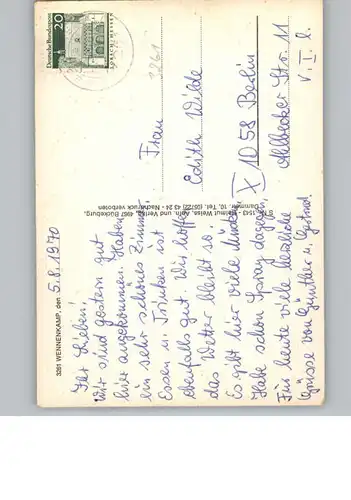 3261 WENNENKAMP, den 5.8.1970
Ihr Lieben!
Wir sind gestern gut
hier angekommen. Haben
ein sehr schönes Zimmer,
Essen u. Trinken ist
ebenfalls gut. Wir hoffen
das Wetter bleibt so.
Es gibt hier viele Mücken
Habe schon Spray dagegen.
Für heute viele herzliche
Grüsse von Günther u.
Helmut Weiss, Foto und Verlag, 4967 Bückeburg,
Dammstr. 10, Tel. (05722) 43 24 - Nachdruck verboten
Deutsche Bundespost
20
3261
Frau
Edith Wilde
X 1058 Berlin
Ahlbecker Str. 11
v. I. l.